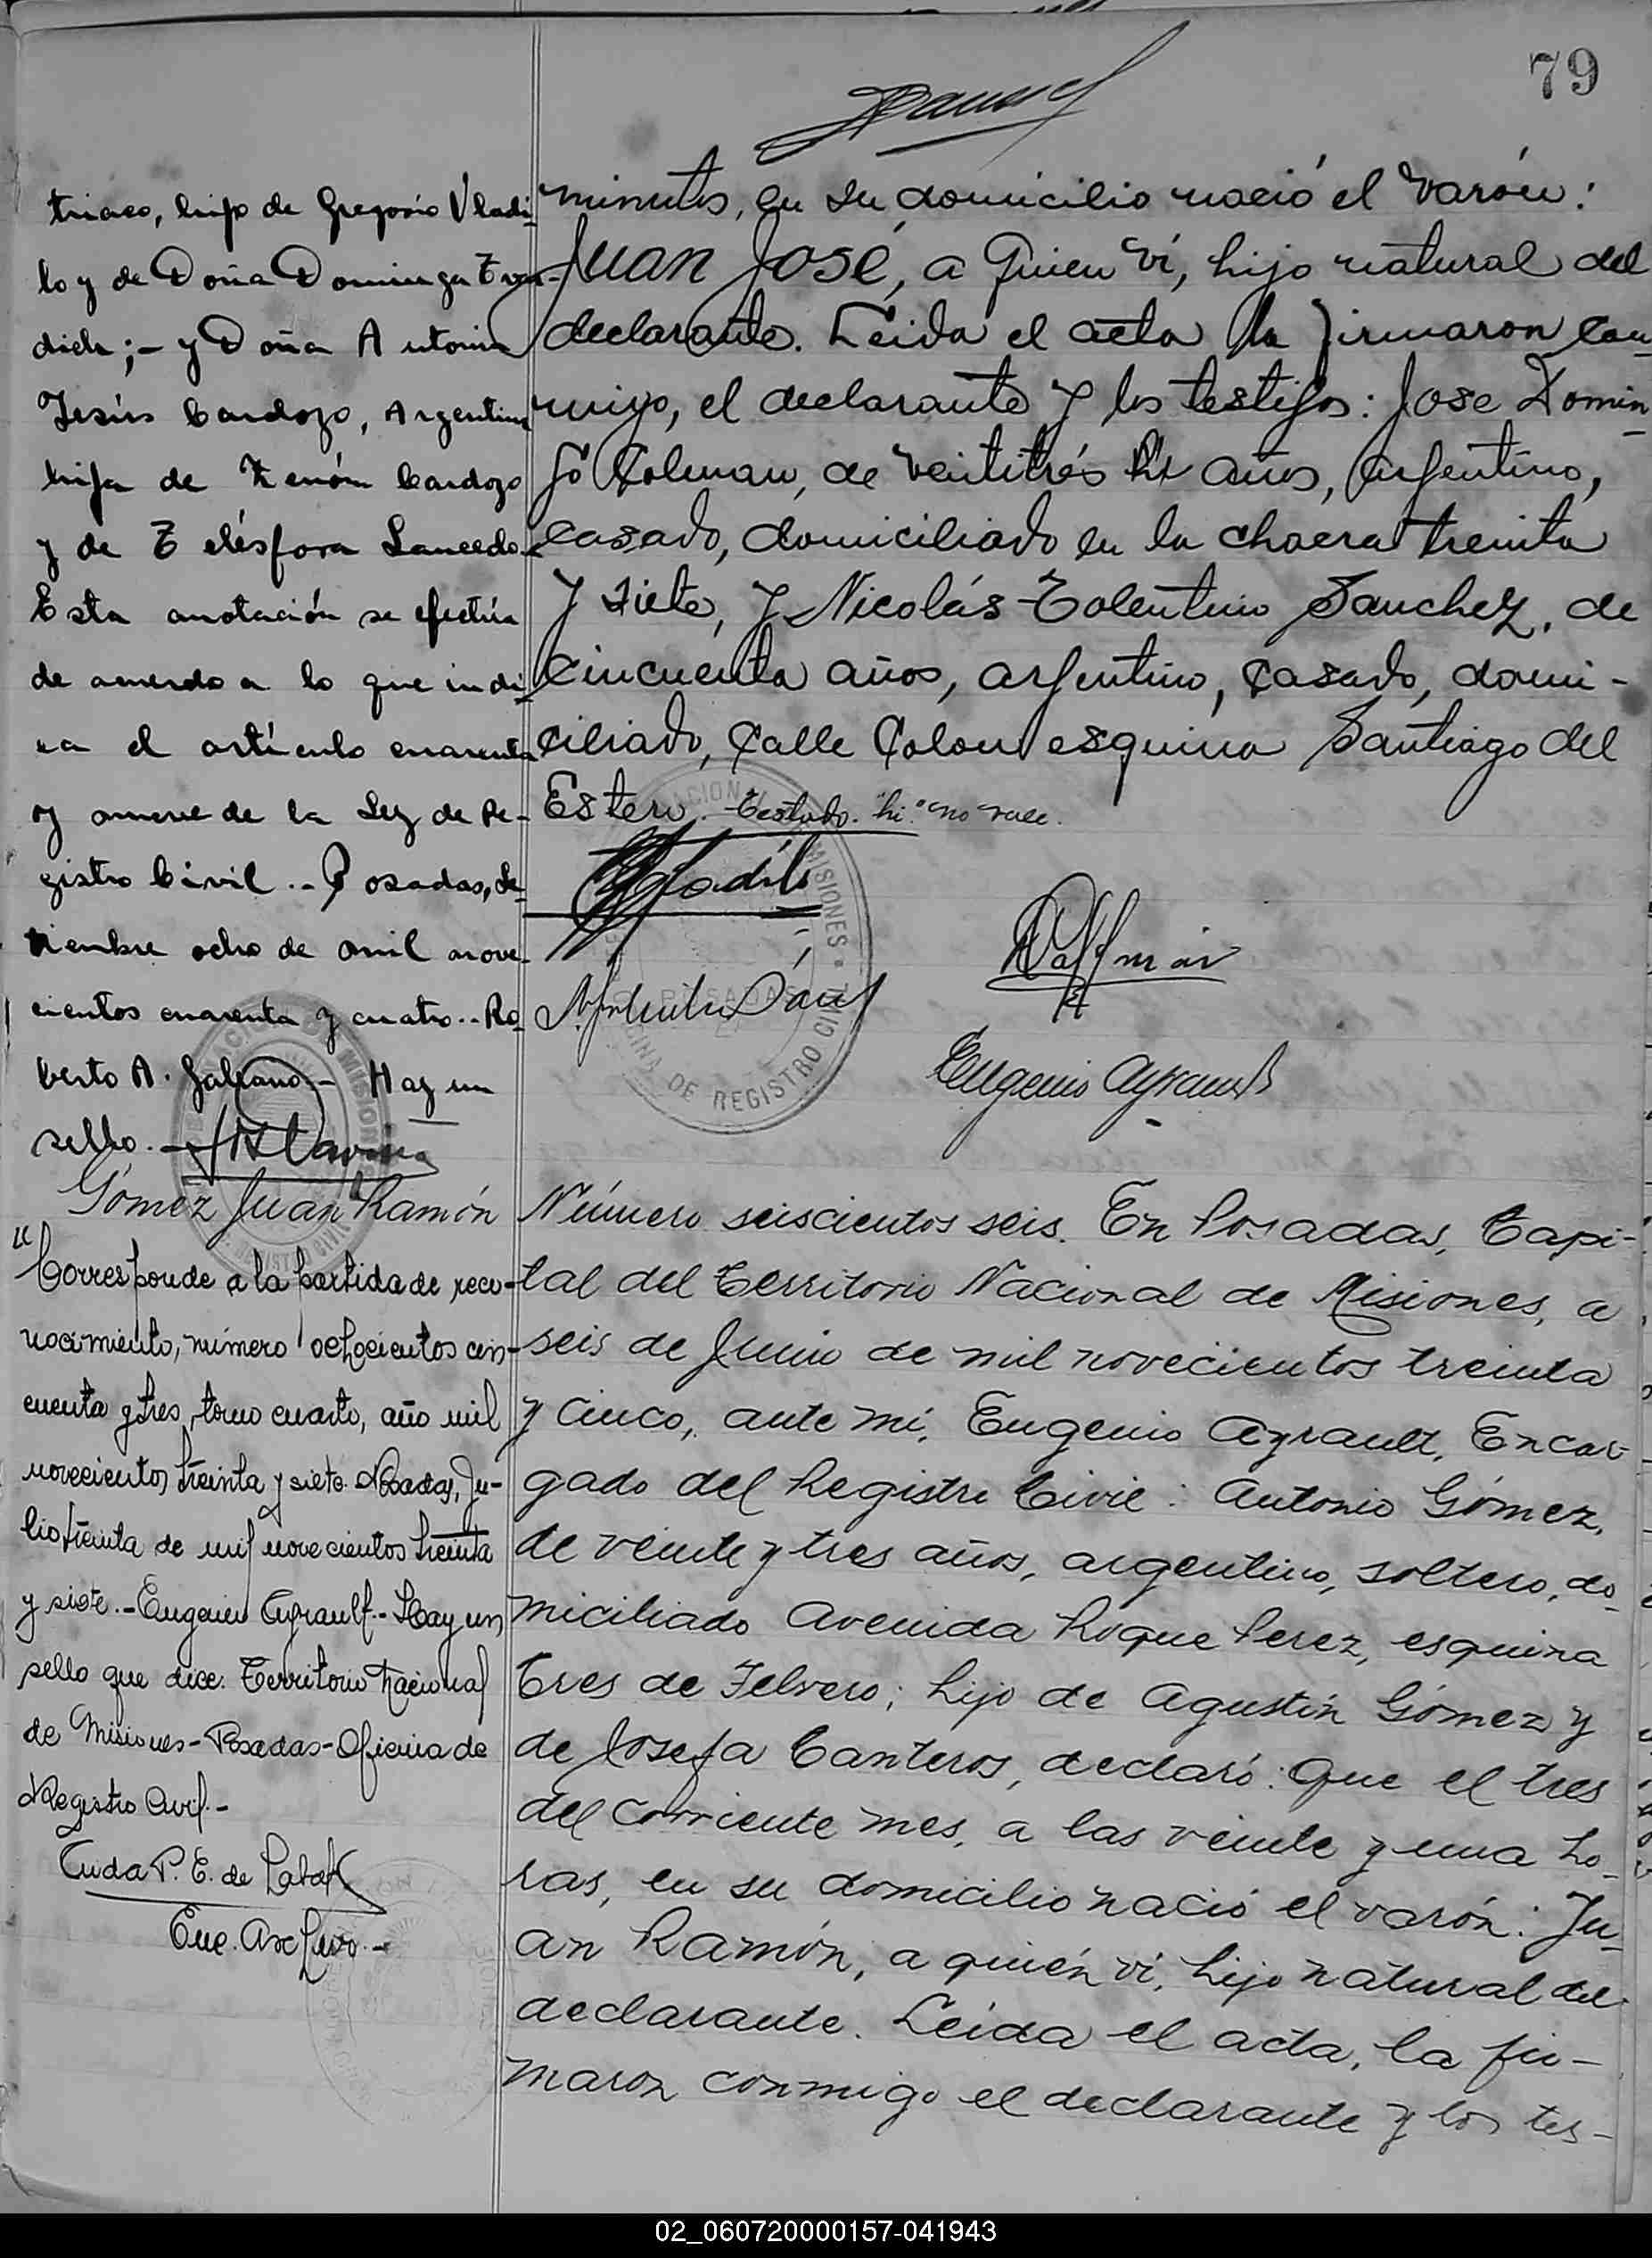 79
triaco, hijo de Gregorio Vladi-
lo y de Doña Dominga
dich; - y Doña Antonia
Jesús Cardozo, Argentina
hija de Zenón Cardozo
y de Telésfora Saucedo.
Esta anotación se efectúa
de acuerdo a lo que indi-
ca el artículo cuarenta
y nueve de la Ley de Re-
gistro Civil.- Posadas, Se-
tiembre ocho de mil nove-
cientos cuarenta y cuatro.- Ro-
berto A. Galeano.- Hay un
sello.-
minutos, en su domicilio nació el varón:
Juan José, a quien ví, hijo natural del
declarante. Leida el acta la firmaron con-
migo, el declarante y los testigos: Jose Domin-
go Colman, de veintitrés hi años, argentino,
casado, domiciliado en la chacra treinta
y siete, y Nicolás Tolentino Sanchez, de
cincuenta años, argentino, casado, domi-
ciliado, Calle Colon esquina Santiago del
Estero. Testado "hi" no vale.
MISIONES
POSADAS
OFICINA DE REGISTRO CIVIL
Eugenio Ayrault
Gómez Juan Ramón
"Corresponde a la partida de reco-
nocimiento, número ochocientos cin-
cuenta y tres, tomo cuarto, año mil
novecientos treinta y siete. Posadas, Ju-
lio treinta de mil novecientos treinta
y siete.- Eugenio Ayrault.- Hay un
sello que dice: Territorio Nacional
de Misiones - Posadas - Oficina de
Registro Civil.-
Enc. Archivo.-
Número seiscientos seis. En Posadas, Capi-
tal del Territorio Nacional de Misiones, a
seis de Junio de mil novecientos treinta
y cinco, ante mí, Eugenio Ayrault, Encar-
gado del Registro Civil: Antonio Gómez,
de veinte y tres años, argentino, soltero, do-
miciliado Avenida Roque Perez, esquina
Tres de Febrero; hijo de Agustín Gómez y
de Josefa Canteros, declaró: Que el tres
del corriente mes, a las veinte y una ho-
ras, en su domicilio nació el varón: Ju-
an Ramón, a quién ví, hijo natural del
declarante. Leída el acta, la fir-
maron conmigo el declarante y los tes-
02_060720000157-041943